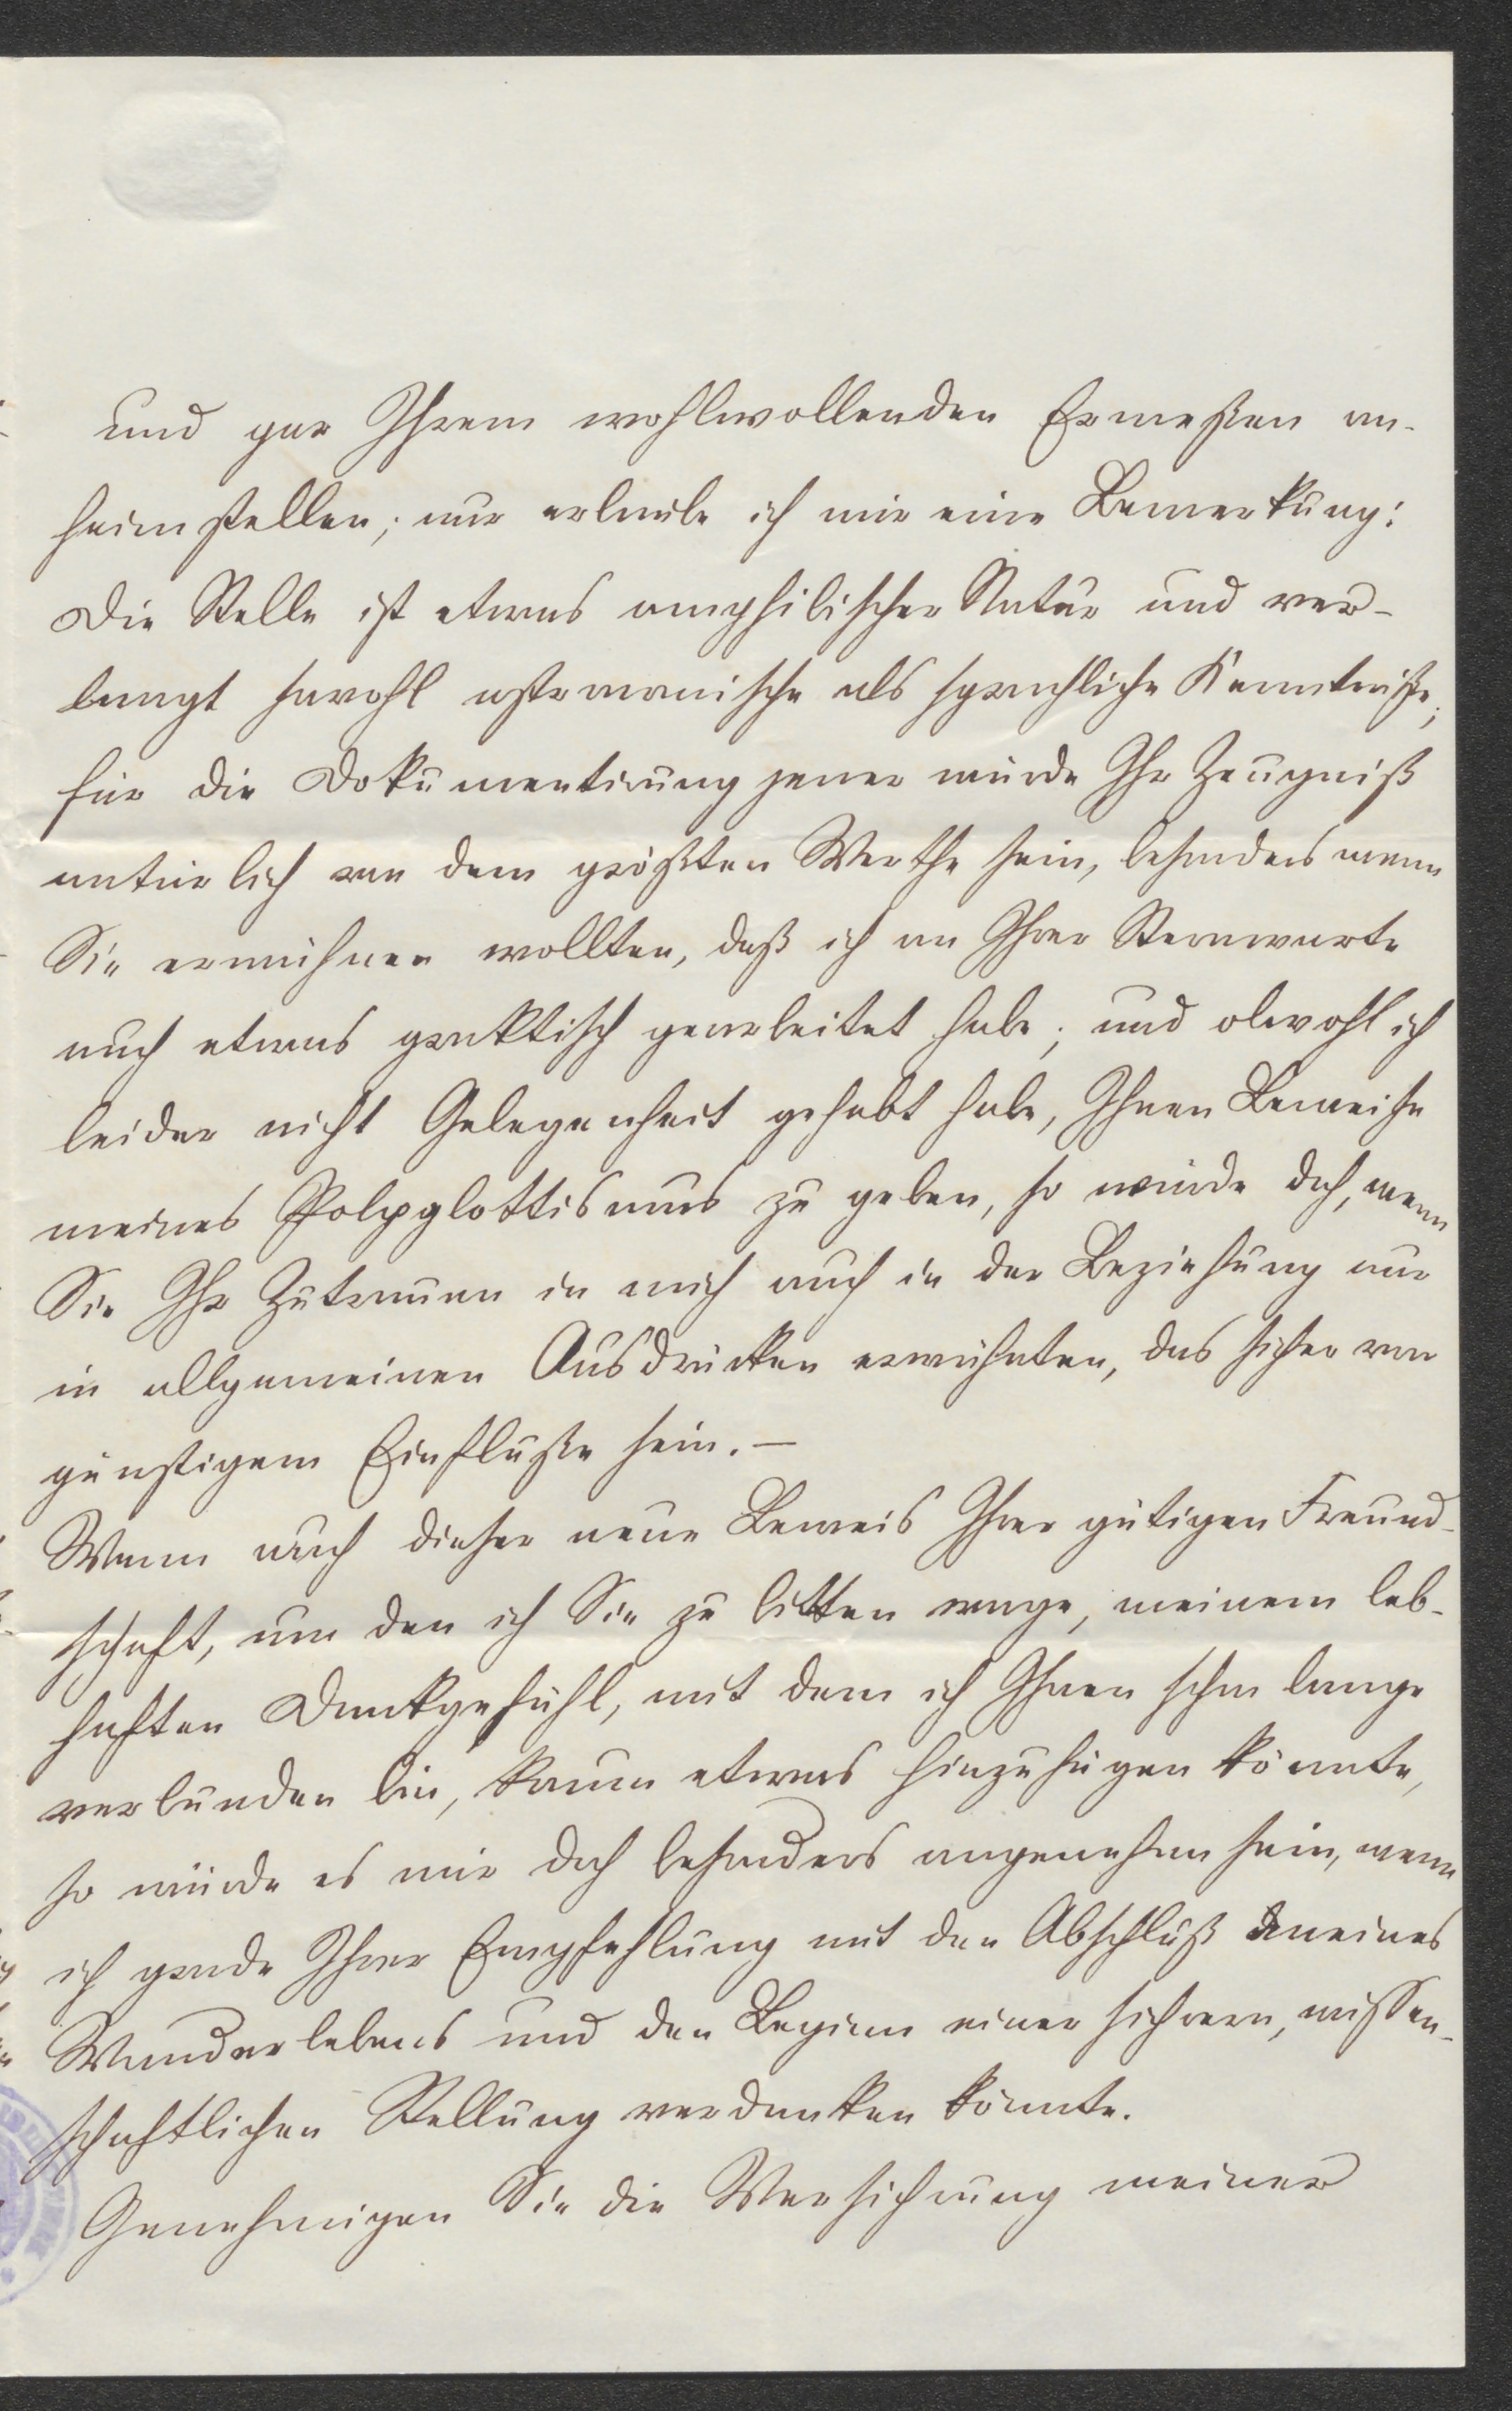 und gar Ihrem wohlwollenden Ermeßen an-
heimstellen; nur erlaube ich mir eine Bemerkung:
Die Stelle ist etwas amphibischer Natur und ver-
langt sowohl astronomische als sprachliche Kenntniße;
für die Dokumentirung jener würde Ihr Zeugniß
natürlich von dem größten Werthe sein, besonders wenn
Sie erwähnen wollten, daß ich an Ihrer Sternwarte
auch etwas praktisch gearbeitet habe; und obwohl ich
leider nicht Gelegenheit gehabt habe, Ihnen Beweise
meines Polyglottismus zu geben, so würde doch, wenn
Sie Ihr Zutrauen in mich auch in der Beziehung nur
in allgemeinen Ausdrücken erwähnten, das sicher von
günstigem Einfluße sein. —
Wenn auch dieser neue Beweis Ihrer gütigen Freund-
schaft, um den ich Sie zu bitten wage, meinem leb-
haften Dankgefühl, mit dem ich Ihnen schon lange
verbunden bin, kaum etwas hinzufügen könnte,
so würde es mir doch besonders angenehm sein, wenn
ich grade Ihrer Empfehlung mit den Abschluß meines
Wanderlebens und den Beginn einer sichern, wissen-
schaftlichen Stellung verdanken könnte.
Genehmigen Sie die Versichrung meiner